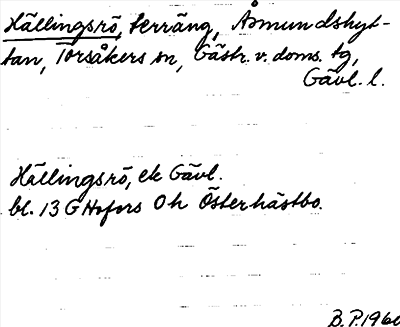 Hällingsrö, terräng, Åsmundshyt-
tan, Torsåkers sn, Gästr. v. doms. tg,
Gävl. l.
Hällingsrö, ek Gävl.
bl. 13 G Hofors 0 h Österhästbo.
B.P. 1960